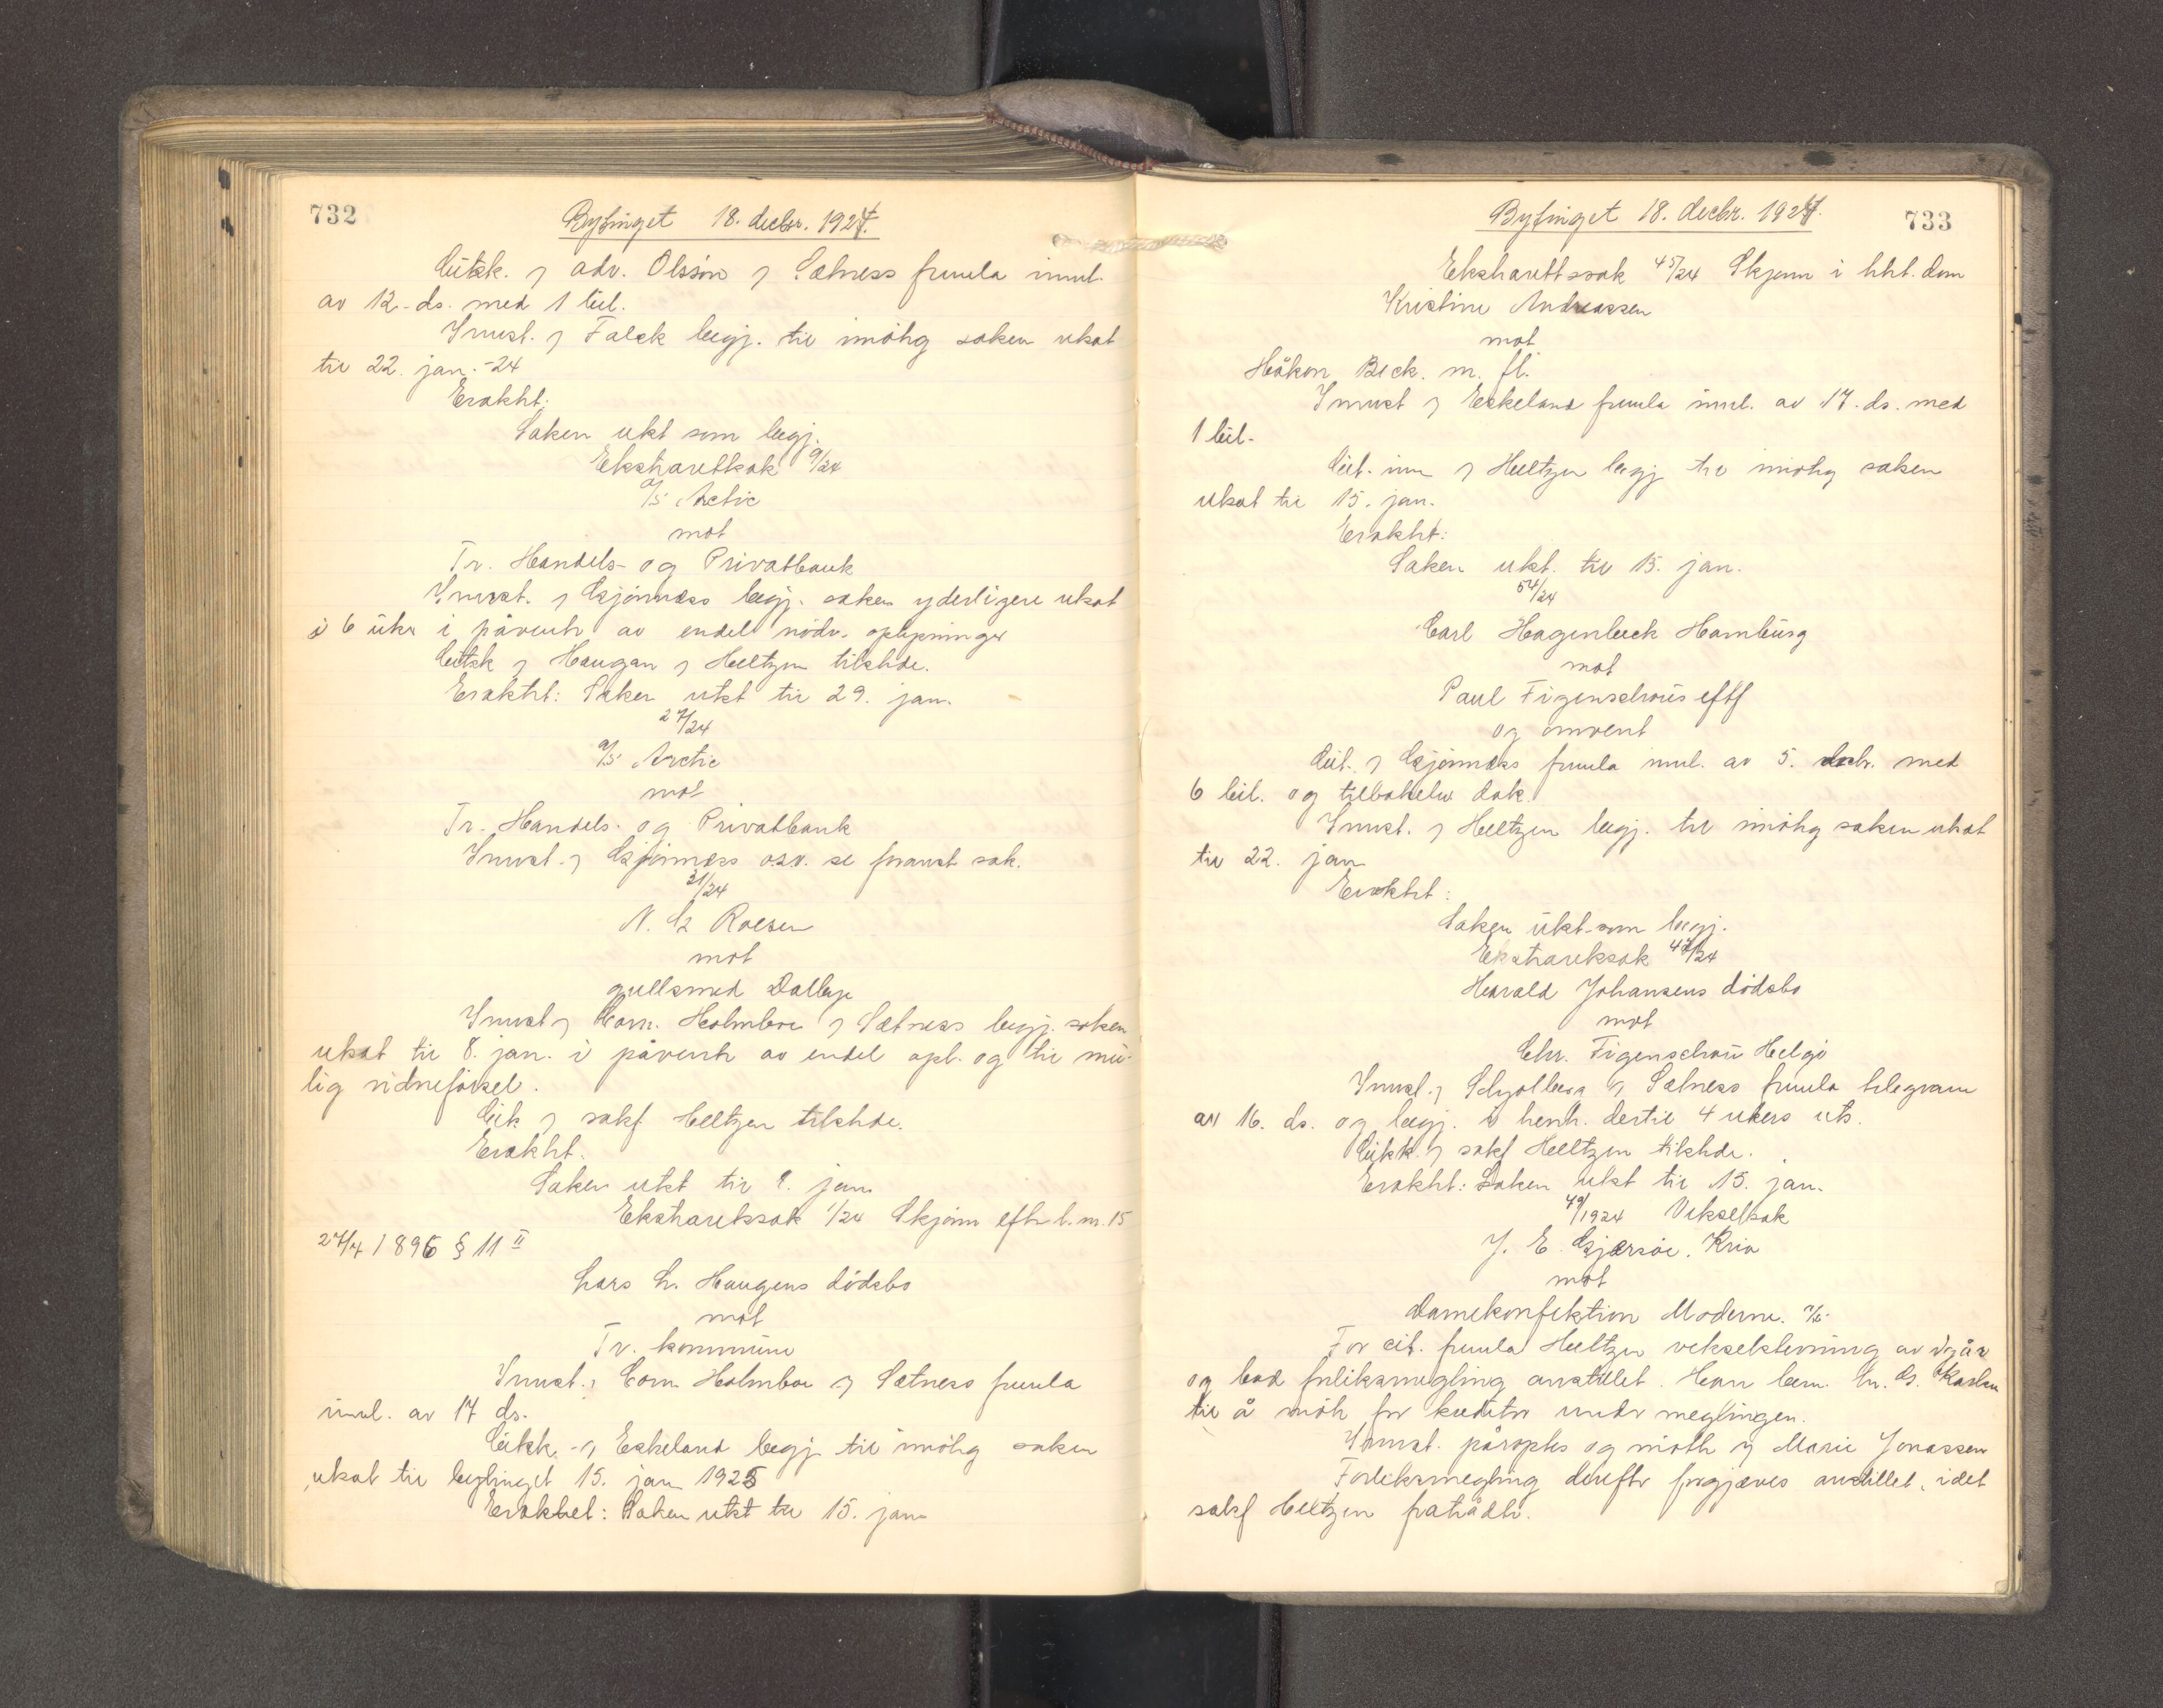 732
Bytinget 18. decbr. 1924.
Citsk. v adv. Olssøn v Sætness fremla innl.
av 12. ds. med 1 bil.
Innst. v Falck begj. til imøtg saken utsat
til 22. jan. -24
Eraktht:
Saken utst som begj.
Ekstrarettsak 9/24
A/S Arctic
mot
Tr. Handels- og Privatbank
Innst. v Gjønnæss begj. saken yderligere utsat
i 6 uker i påvente av endel nødv. oplysninger
Citsk v Haugan v Heltzen tilstede.
Eraktht: Saken utst til 29. jan.
27/24
A/S Arctic
mot
Tr. Handels- og Privatbank
Innst. v Gjønnæss osv. se foranst sak.
31/24
N. G Roesen
mot
gullsmed Dalbye
Innst v Corn. Holmboe v Sætness begj. saken
utsat til 8. jan. i påvente av endel opl. og til mu-
lig vidneførsel.
Citk v sakf. Heltzen tilstede.
Eraktht:
Saken utst til 8. jan.
Ekstraretsak 1/24 Skjønn efter l. nr. 15
27/4 1896 § 11 II
Lars L. Haugens dødsbo
mot
Tr. kommune
Innst. v Corn Holmboe v Sætness fremla
innl. av 17 ds.
Citsk. v Eskeland begj til imøtg saken
utsat til bytinget 15. jan 1925
Eraktet: Saken utst til 15. jan.
Bytinget 18. decbr. 1924.
733
Ekstrarettssak 45/24 Skjønn i hht. dom
Kristine Andreassen
mot
Håkon Beck. m. fl.
Innst v Eskeland fremla innl. av 17. ds. med
1 bil.
Cit. inn v Heltzen begj til imøtg saken
utsat til 15. jan.
Eraktht:
Saken utst. til 15. jan.
54/24
Carl Hagenbeck Hamburg
mot
Paul Figenschous eftf
og omvent
Cit. v Gjønnæss fremla innl. av 5. decbr. med
6 bil. og tilbakelev dok.
Innst. v Heltzen begj. til imøtg saken utsat
til 22. jan
Eraktht:
Saken utst. som begj.
Ekstraretsak 47/24
Harald Johansens dødsbo
mot
Chr. Figenschou Helgø
Innst. v Schjølberg v Sætness fremla telegram
av 16. ds. og begj. i henh. dertil 4 ukers uts.
Citsk. v sakf Heltzen tilstede.
Eraktht: Saken utst til 15. jan.
49/1924 Vekselsak
J. E. Gjersøe. Kria
mot
Damekonfektion Moderne. A/S.
For cit. fremla Heltzen vekselstevning av igår
og bad forliksmegling anstillet. Han bem. hr. ds. Karlsen
til å møte for kreditor under meglingen.
Innst. påroptes og møtte v Marie Jonassen
Forliksmegling derefter forgjæves anstillet, idet
sakf Heltzen fratrådte.